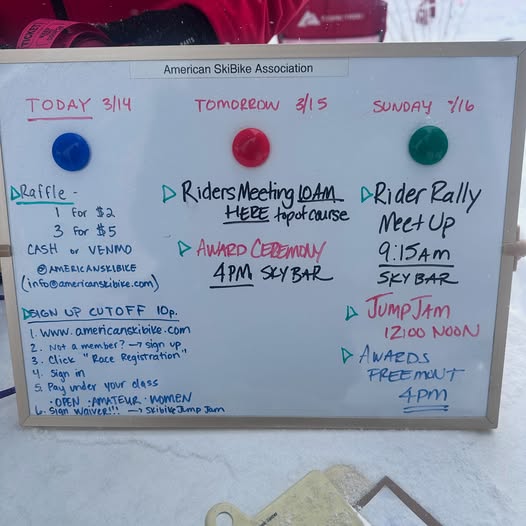 American SkiBike Association
TODAY 3/14
Raffle -
1 for $2
3 for $5
CASH or VENMO
@AMERICANSKIBIKE
(info@americanskibike.com)
SIGN UP CUTOFF 10p.
1. www.americanskibike.com
2. Not a member? → sign up
3. Click "Race Registration"
4. Sign in
5. Pay under your class
· OPEN · AMATEUR · WOMEN
6. Sign Waiver!!! → Skibike Jump Jam
TOMORROW 3/15
Riders Meeting 10AM
HERE top of course
AWARD CEREMONY
4PM SKY BAR
SUNDAY 3/16
Rider Rally
Meet Up
9:15AM
SKY BAR
JUMP JAM
12:00 NOON
AWARDS
FREEMONT
4PM